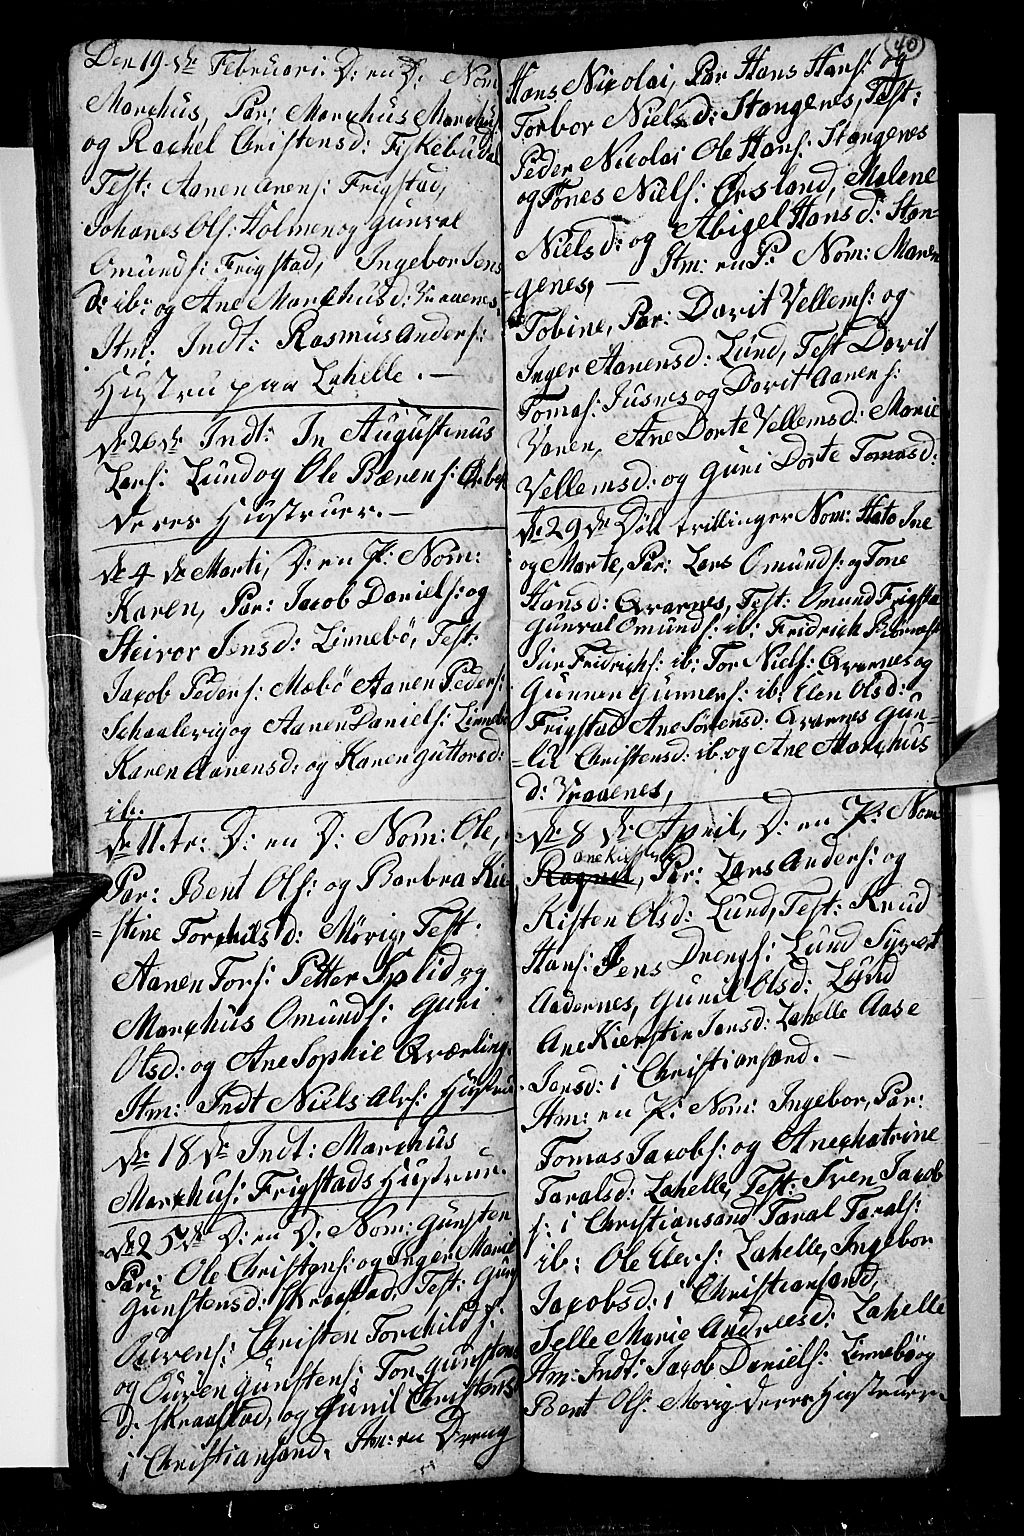 Den 19de Februari. D: en D: Nom
Marchus, Par: Marchus Marchus
og Rachel Christensd: Fiskebudal
Test: Aanen Arens: Frigstad,
Johanes Ols: Holmen og Gunval
Omunds: Frigstad, Ingebor Jens
d: ib: og Ane Marchusd: Vraaenes,
Itm: Indt: Rasmus Anders:
Hustru paa Lahelle. —
de 26de Indt: In Augustinus
Lars: Lund og Ole Bærens:
deres Hustruer. —
de 4de Marti, D: en P: Nom:
Karen, Par: Jacob Daniels: og
Steivor Jensd: Linnebö, Test:
Jacob Peders: Mæbö Aanen Peders:
Schaalevig og Aanen Daniels: Linnebö
Karen Aanensd: og Karen Guttorsd:
ib:
de 11.te: D: en D: Nom: Ole,
Par: Bent Ols: og Barbra Kie-
=stine Torchilsd: Mövig, Test:
Aanen Tors: Petter Splid og
Marchus Omunds: Guri
Olsd: og Ane Sophie Qværling.
Itm: Indt Niels Alvs: Hustru.
de 18de Indt: Marchus
Marchus: Frigstads Hustrue.
de 25de D: en D: Nom: Gunsten
Par: Ole Christens: og Inger Marie
Gunstensd: Skraastad, Test:
Ouvens: Christen Torchilds:
og Ouven Gunstens: Tore Gunstens
d: Skraastad, og Gunil Christensd
i Christiansand. Itm: en Dreng
40
Hans Nicolai, Par Hans Hans: og
Torbor Nielsd: Stangenes, Test:
Peder Nicolai Ole Hans: Stangenes
og Tönes Niels: Örsland, Malene
Nielsd: og Abigel Hansd: Stan-
genes, — Itm: en P: Nom: Maren
Tobine, Par: Davit Vellems: og
Inger Aanensd: Lund, Test Davit
Tomas: Jusnes og Davit Aanens:
Voren, Ane Dorte Vellemsd: Marie
Vellemsd: og Guri Dorte Tomasd:
de 29de Döbt trillinger Nom:
og Marte, Par: Lars Omunds: og Tone
Hansd: Qvarnes, Test: Omund Frigsta
Gunval Omunds: ib: Fridrich
Fridrichs: ib: Tor Niels: Qvarnes og
Gunner Gunners: ib: Elen Olsd:
Frigstad Ane Sörensd: Qvarnes Gun-
=lil Christensd: ib. og Ane Marchus
d: Vraaenes,
de 8de April, D: en P: Nom
Ane Kierstine
Ragnil, Par: Lars Anders: og
Kisten Olsd: Lund, Test: Knud
Hans: Jens Drengs: Lund Syvert
Andernes, Gunil Olsd: Lund
Ane Kierstin Jansd: Lahelle Aase
Jensd: i Christiansand. —
Itm: en P: Nom: Ingebor, Par:
Tomas Jacobs: og Anechatrine
Taralsd: Lahelle, Test: Sven Jacob
s: i Christiansand Taral Tarals:
ib: Ole Elers: Lahelle, Ingebor
Jacobsd: i Christiansand,
Selle Marie Andreasd: Lahelle
Itm: Indt: Jacob Daniels: Linnebö og
Bent Ols: Mövig deres Hustruer.